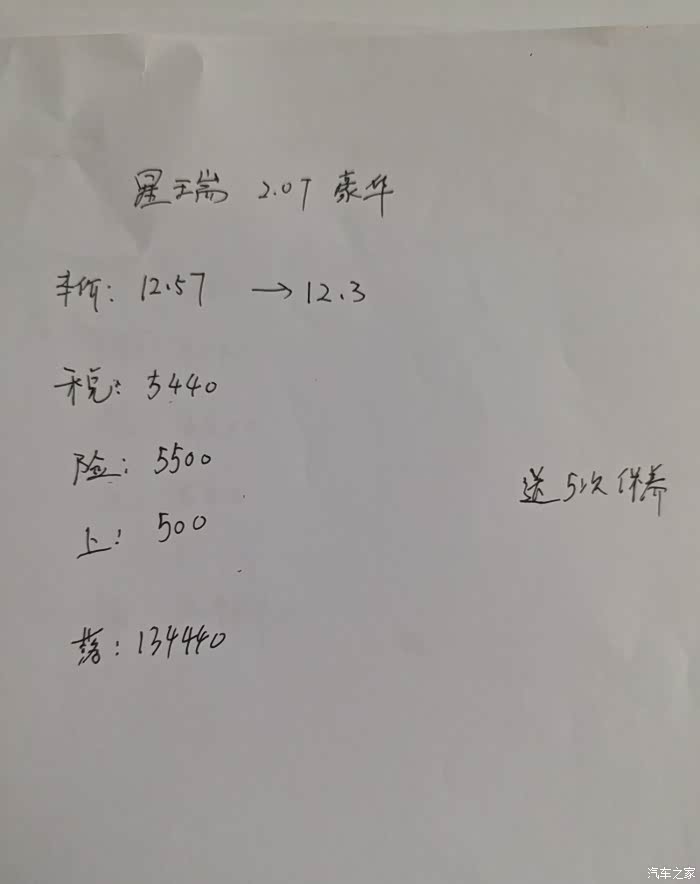 星瑞 2.0T 豪华
车价: 12.57 → 12.3
税: 5440
险: 5500
送5次保养
上: 500
落: 134440
汽车之家